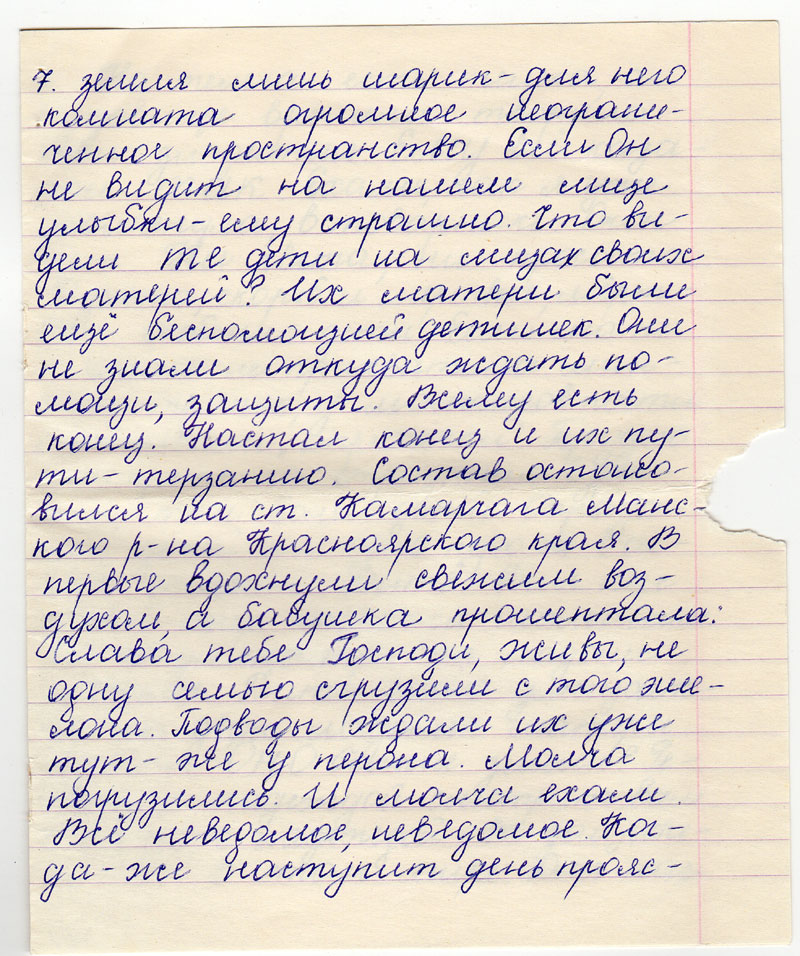 7. земля лишь шарик - для него
комната огромное неограни-
ченное пространство. Если Он
не видит на нашем лице
улыбки - ему страшно. Что ви-
дели те дети на лицах своих
матерей? Их матери были
ещё беспомощней детишек. Они
не знали откуда ждать по-
мощи, защиты. Всему есть
конец. Настал конец и их пу-
ти - терзанию. Состав остано-
вился на ст. Камарчага Манс-
кого р-на Красноярского края. В
первые вдохнули свежим воз-
духом, а бабушка прошептала:
Слава тебе Господи, живы, не
одну семью сгрузили с того эше-
лона. Подводы ждали их уже
тут - же у перона. Молча
погрузились. И молча ехали.
Всё неведомое, неведомое. Ког-
да - же наступит день прояс-